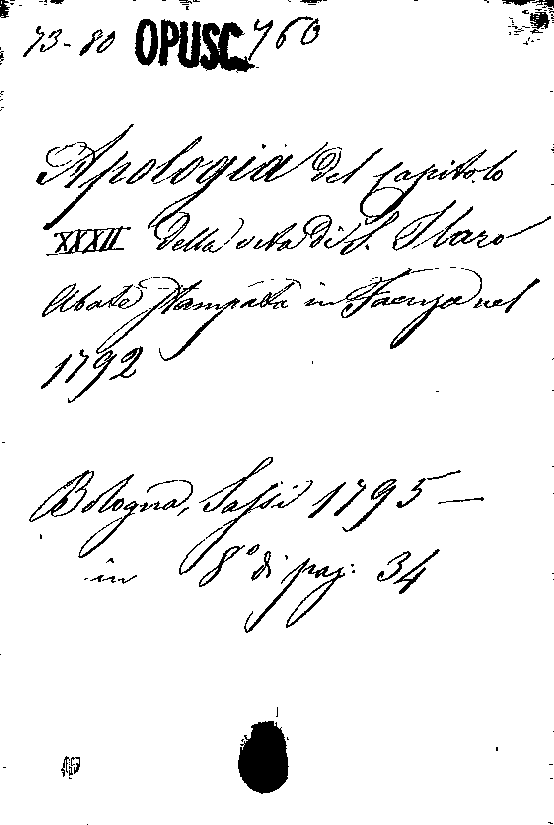 73-80 OPUSC 760
Apologia del Capitolo
XXXII della vita di S. Ilaro
Abate stampata in Faenza nel
1792
Bologna, Sassi 1795 —
in 8° di pag: 34